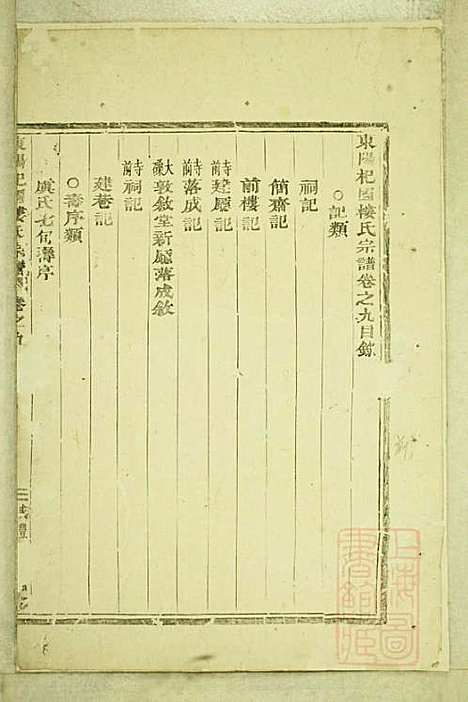 東陽杞國樓氏宗譜卷之九目錄
○記類
祠記
簡齋記
前樓記
建廳記
落成記
敦敘堂新廳落成敘
祠記
建巷記
○壽序類
虞氏七旬壽序
東陽杞國樓氏宗譜 卷之
上海圖書館藏